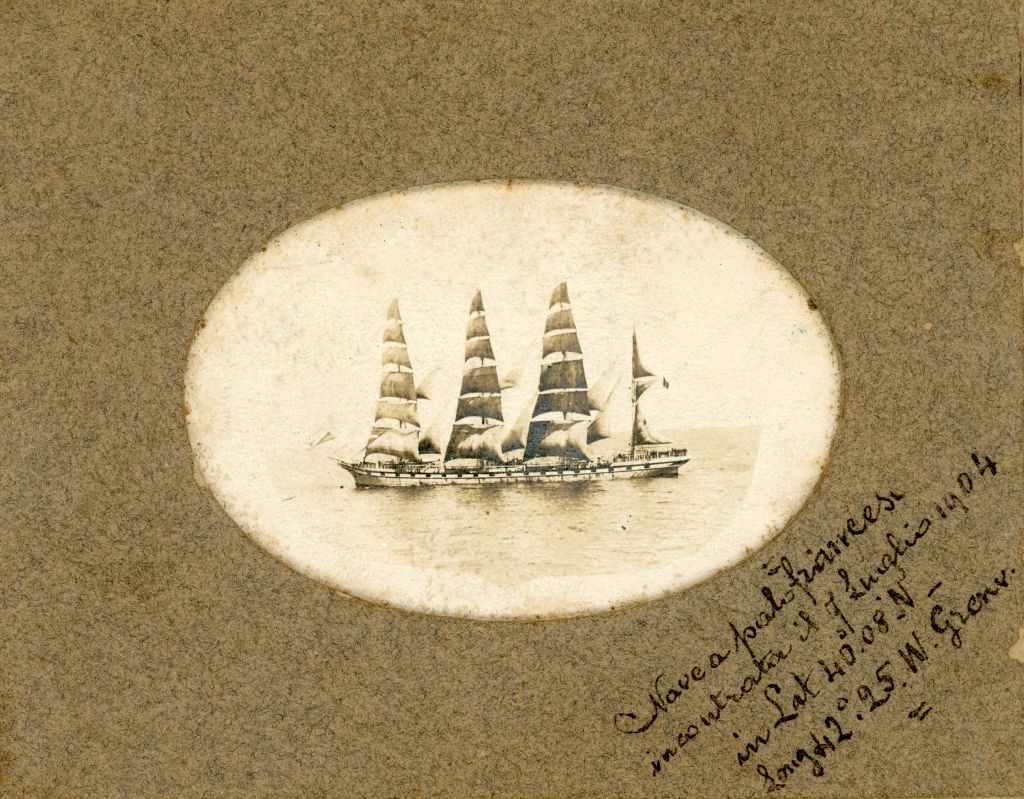 Nave a palo francese
incontrata il 7 Luglio 1904
in Lat 40°.08'.N
Long 42°.25.W. Grenv.
=